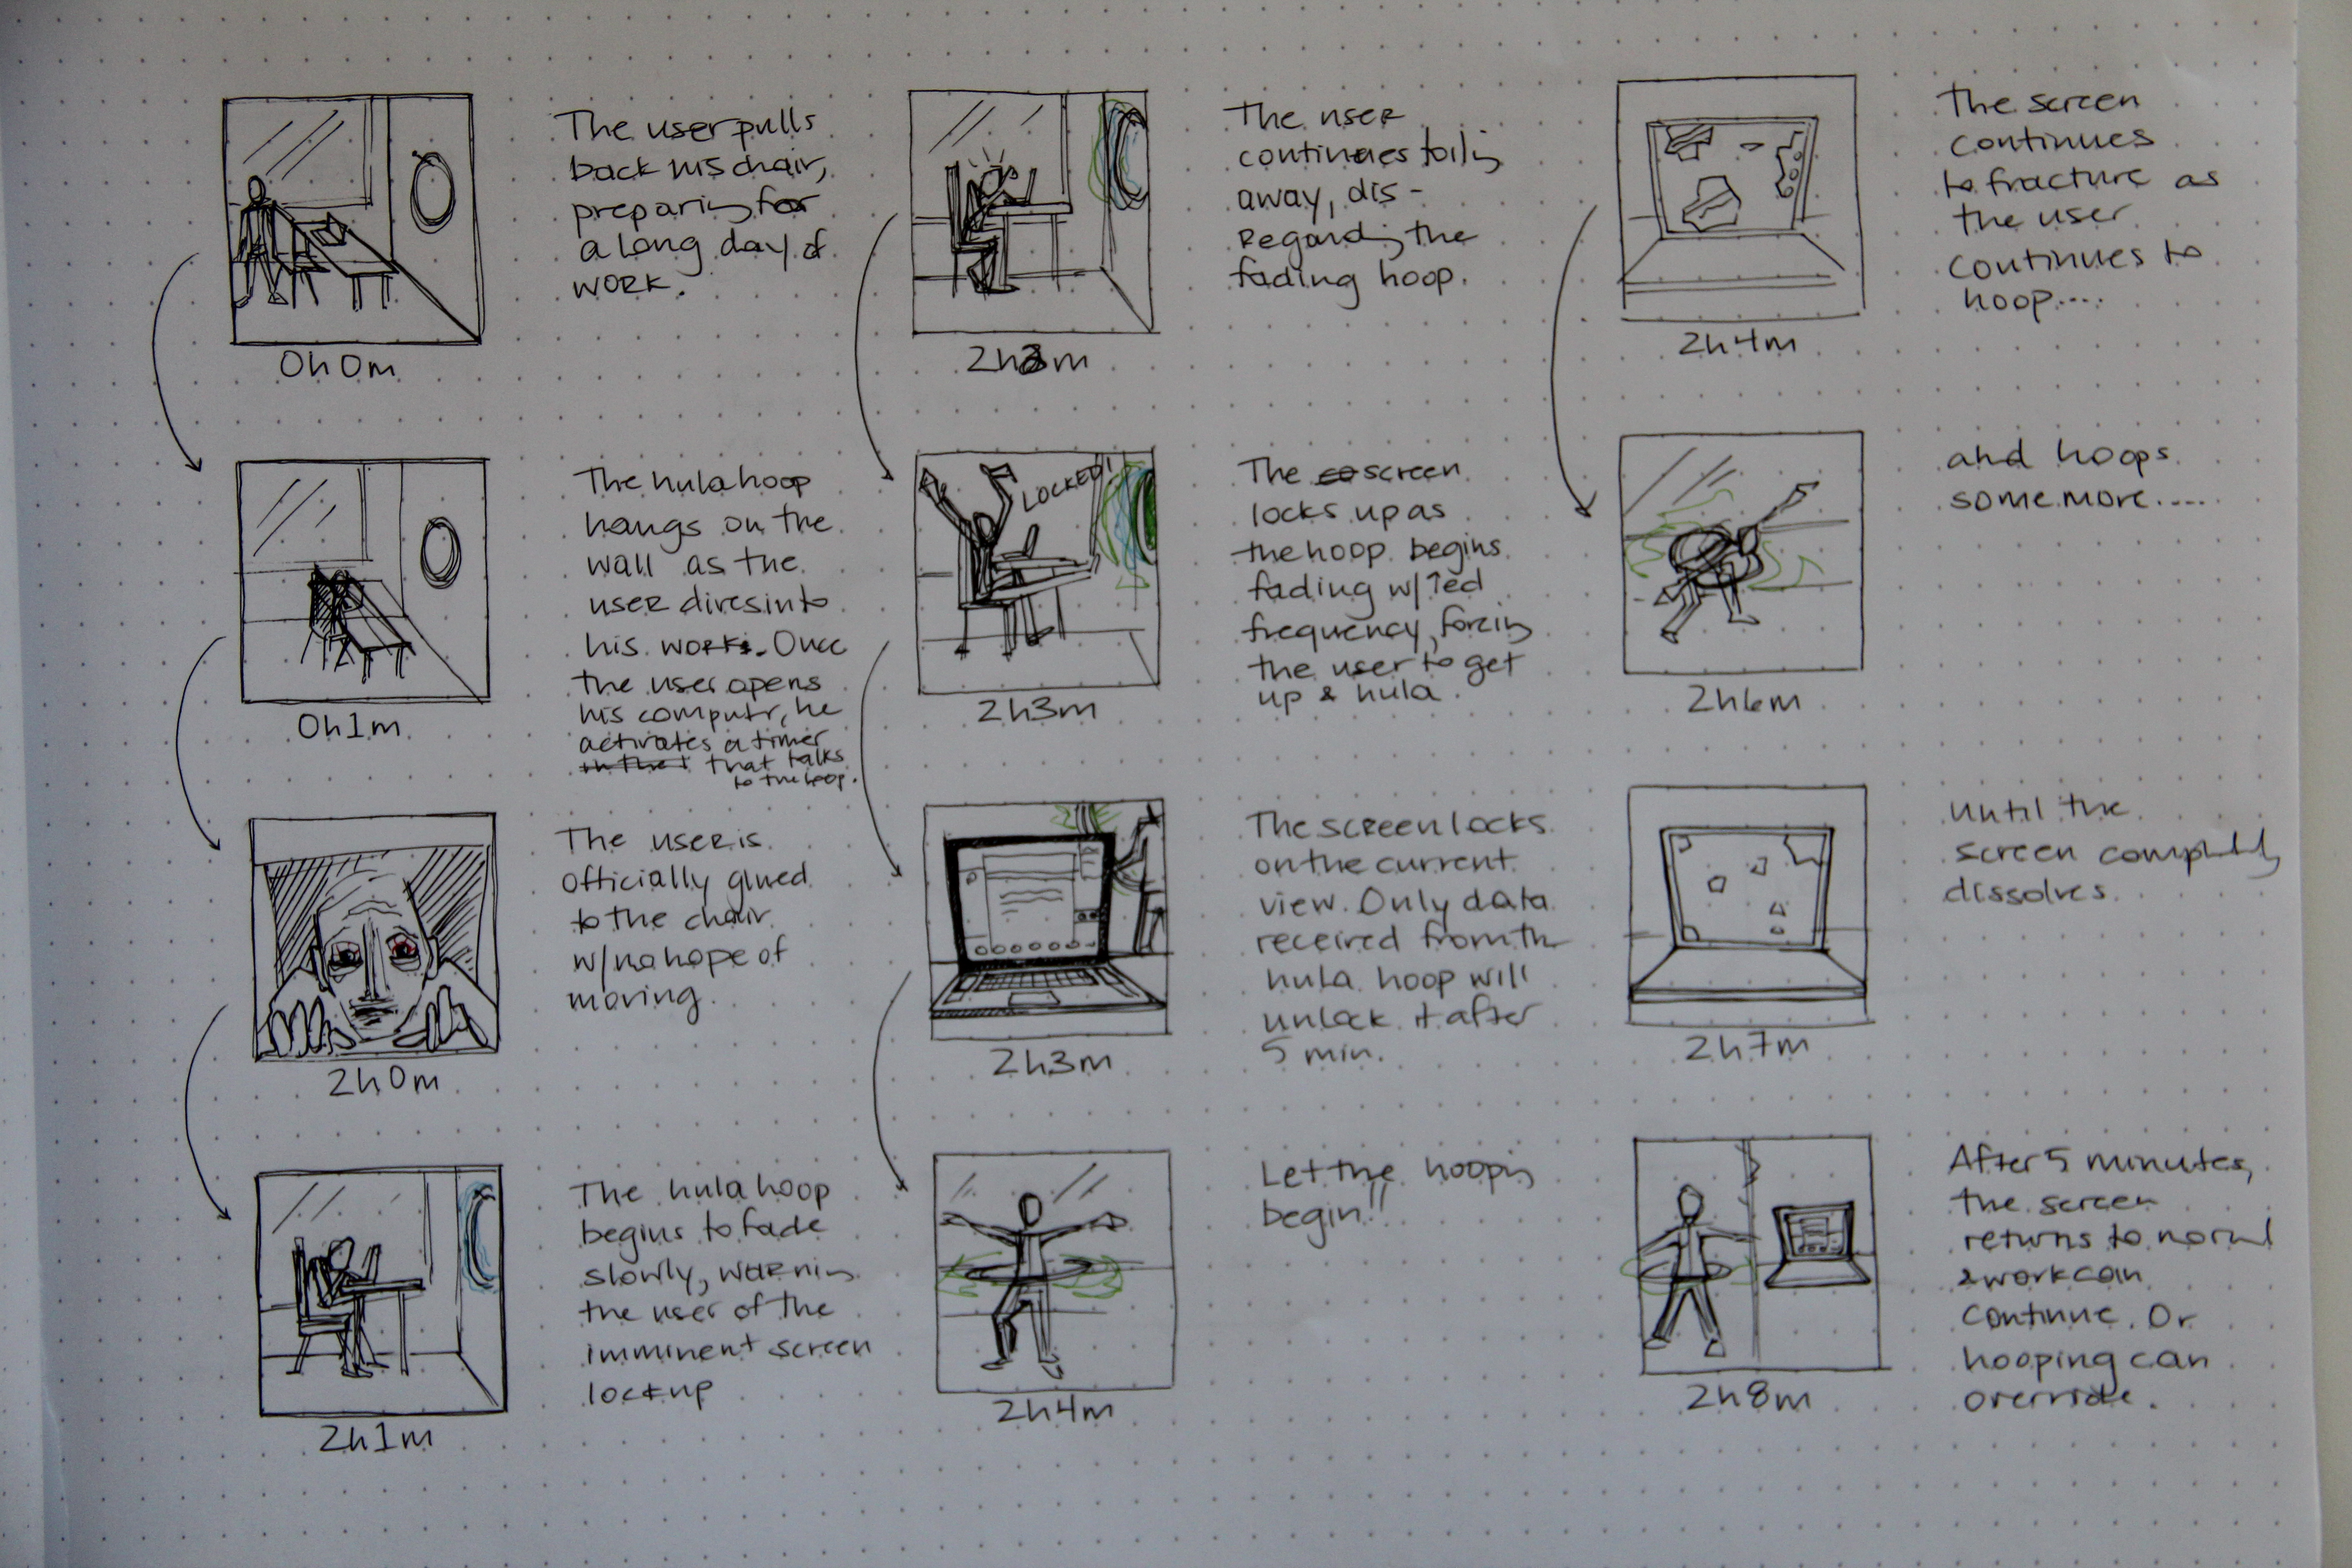 The user pulls
back his chair,
preparing for
a long day of
work.
0h0m
The hula hoop
hangs on the
wall as the
user dives into
his work. Once
the user opens
his computr, he
activates a timer
that talks
to the hoop.
0h1m
The user is
officially glued
to the chair
w/no hope of
moving.
2h0m
The hula hoop
begins to fade
slowly, warning
the user of the
imminent screen
lockup
2h1m
The user
continues toiling
away, dis-
regarding the
fading hoop.
2h3m
LOCKED!
The screen
locks up as
the hoop begins
fading w/ ↑ed
frequency, forcing
the user to get
up & hula.
2h3m
The screen locks
on the current
view. Only data
received from the
hula hoop will
unlock it after
5 min.
2h3m
Let the hooping
begin!!
2h4m
The screen
continues
to fracture as
the user
continues to
hoop....
2h4m
and hoops
some more....
2h6m
until the
screen completely
dissolves.
2h7m
After 5 minutes,
the screen
returns to normal
& work can
continue. Or
hooping can
override.
2h8m